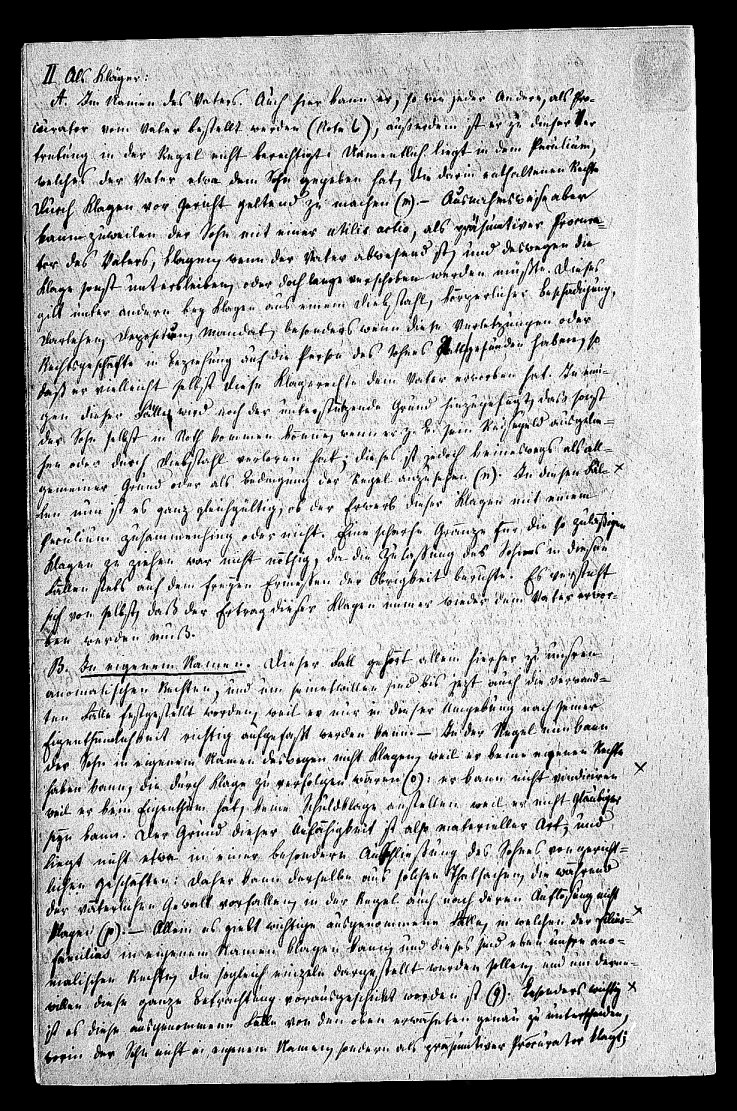 II Als Kläger:
A. Im Namen des Vaters. Auch hier kann er, so wie jeder Andere, als Pro-
curator vom Vater bestellt werden (Note b), außerdem ist er zu dieser Ver
tretung in der Regel nicht berechtigt. Namentlich liegt in dem Peculium,
welches der Vater etwa dem Sohn gegeben hat, die darin enthaltenen Rechte
durch Klagen vor Gericht geltend zu machen (m) – Ausnahmsweise aber
kann zuweilen der Sohn mit einer utilis actio, als präsumtiver Procura-
tor des Vaters, klagen, wenn der Vater abwesend ist, und deswegen die
Klage sonst unterbleiben, oder doch lange verschoben werden müßte. Dieses
gilt unter andern bey Klagen aus einem Diebstahl, körperlicher Beschädigung,
Darlehen, Depositum, Mandat, besonders wenn diese Verletzungen oder
Rechtsgeschäfte in Beziehung auf die Person des Sohnes stattgefunden haben, so
daß er vielleicht selbst diese Klagrechte dem Vater erworben hat. In eini-
gen dieser Fälle wird noch der unterstützende Grund hinzugefügt, daß sonst
der Sohn selbst in Noth kommen könne, wenn er z. B. sein Reisegeld ausgelie-
hen oder durch Diebstahl verloren hat; dieses ist jedoch keineswegs als all-
gemeiner Grund oder als Bedingung der Regel anzusehen (n). In diesen Fäl-
len nun ist es ganz gleichgültig, ob der Erwerb dieser Klagen mit einem
Peculium zusammenhing oder nicht. Eine scharfe Gränze für die so zulässigen
Klagen zu ziehen war nicht nöthig, da die Zulassung des Sohnes in diesen
Fällen stets auf dem freyen Ermessen der Obrigkeit beruhte. Es versteht
sich von selbst, daß der Ertrag dieser Klagen immer wieder dem Vater erwor-
ben werden muß.
B. In eigenem Namen. Dieser Fall gehört allein hierher zu unsren
anomalischen Rechten, und um seinetwillen sind bis jetzt auch die verwand-
ten Fälle festgestellt worden, weil er nur in dieser Umgebung nach seiner
Eigenthümlichkeit richtig aufgefaßt werden kann. – In der Regel nun kann
der Sohn in eigenem Namen deswegen nicht klagen, weil er keine eigenen Rechte
haben kann, die durch Klage zu verfolgen wären (o): er kann nicht vindiciren
weil er kein Eigenthum hat, keine Schuldklage anstellen weil er nicht Gläubiger
seyn kann. Der Grund dieser Unfähigkeit ist also materieller Art, und
liegt nicht etwa in einer besondern Ausschließung des Sohnes von gericht-
lichen Geschäften: daher kann derselbe aus solchen Thatsachen, die während
der väterlichen Gewalt vorfallen, in der Regel auch nach deren Auflösung nicht
klagen (p). – Allein es giebt wichtige ausgenommene Fälle, in welchen der filius-
familias in eigenem Namen klagen kann, und dieses sind eben unsre ano-
malischen Rechte, die sogleich einzeln dargestellt werden sollen, und um deren-
willen diese ganze Betrachtung vorausgeschickt worden ist (q). Besonders wichtig
ist es diese ausgenommenen Fälle von den oben erwähnten genau zu unterscheiden,
worin der Sohn nicht in eigenem Namen, sondern als präsumtiver Procurator klagt;